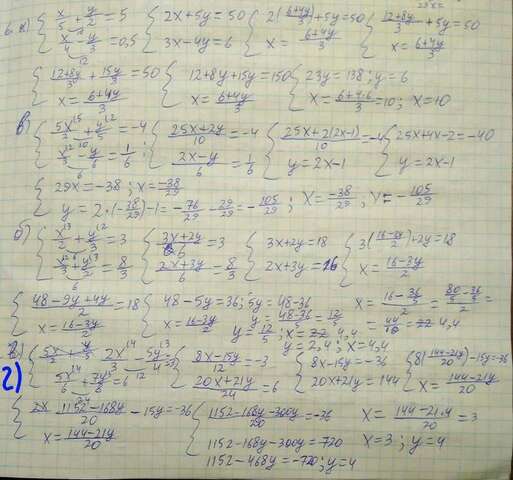 6. а) { x/5 + y/2 = 5 ; x/4 - y/3 = 0,5 { 2x+5y = 50 ; 3x-4y = 6 { 2(6+4y)/3 + 5y = 50 ; x = (6+4y)/3 { (12+8y)/3 + 5y = 50 ; x = (6+4y)/3
{ (12+8y)/3 + 15y/3 = 50 ; x = (6+4y)/3 { 12+8y+15y = 150 ; x = (6+4y)/3 { 23y = 138; y = 6 ; x = (6+4·6)/3 = 10; x = 10
в) { 5x/2 + y/5 = -4 ; x/3 - y/6 = 1/6 { (25x+2y)/10 = -4 ; (2x-y)/6 = 1/6 { (25x+2(2x-1))/10 = -4 ; y = 2x-1 { 25x+4x-2 = -40 ; y = 2x-1
{ 29x = -38; x = -38/29 ; y = 2·(-38/29)-1 = -76/29 - 29/29 = -105/29 ; x = -38/29 ; y = -105/29
б) { x/2 + y/3 = 3 ; x/3 + y/2 = 8/3 { (3x+2y)/6 = 3 ; (2x+3y)/6 = 8/3 { 3x+2y = 18 ; 2x+3y = 16 { 3(16-3y)/2 + 2y = 18 ; x = (16-3y)/2
{ (48-9y+4y)/2 = 18 ; x = (16-3y)/2 { 48-5y = 36; 5y = 48-36 ; x = (16-3y)/2 y = (48-36)/5 = 12/5
y = 12/5; x = 4,4
y = 2,4; x = 4,4
x = (16-36/5)/2 = (80/5-36/5)/2 =
= 44/10 = 4,4
г) { 2x/3 - 5y/4 = -3 ; 5x/6 + 7y/8 = 6 { (8x-15y)/12 = -3 ; (20x+21y)/24 = 6 { 8x-15y = -36 ; 20x+21y = 144 { 8(144-21y)/20 - 15y = -36 ; x = (144-21y)/20
{ (1152-168y)/20 - 15y = -36 ; x = (144-21y)/20 { (1152-168y-300y)/20 = -36 x = (144-21·4)/20 = 3
1152-168y-300y = -720 x = 3; y = 4
1152-468y = -720; y = 4